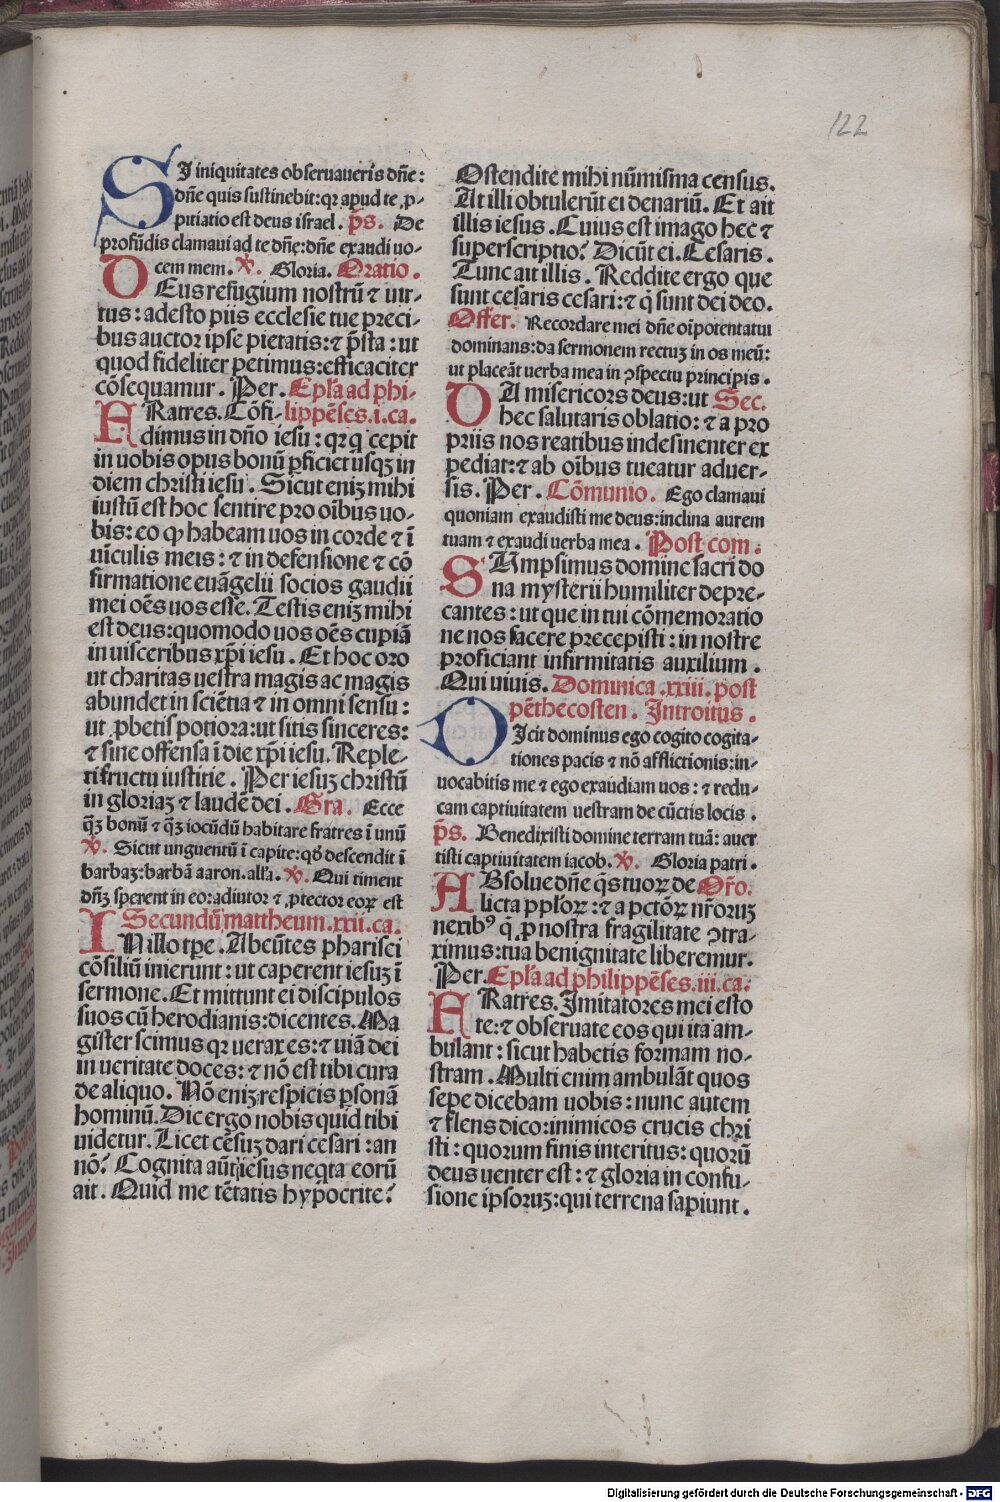 122
SI iniquitates obseruaueris dñe:
dñe quis sustinebit: qꝛ apud te ꝓ-
pitiatio est deus israel. p̃s. De
profũdis clamaui ad te dñe: dñe exaudi uo-
cem mem. ℣. Gloria. Oratio.
DEus refugium nostrũ ⁊ uir-
tus: adesto piis ecclesie tue preci-
bus auctor ipse pietatis: ⁊ p̃sta: ut
quod fideliter petimus: efficaciter
cõsequamur. Per. Ep̃la ad phi-
FRatres. Cõfi- lippẽses. i. ca.
dimus in dño iesu: qꝛ q̇ cepit
in uobis opus bonũ ꝑficiet usqꝫ in
diem christi iesu. Sicut eniꝫ mihi
iustũ est hoc sentire pro oĩbus uo-
bis: eo ꝙ habeam uos in corde ⁊ ĩ
uĩculis meis: ⁊ in defensione ⁊ cõ
firmatione euãgelii socios gaudii
mei oẽs uos esse. Testis eniꝫ mihi
est deus: quomodo uos oẽs cupiã
in uisceribus xp̃i iesu. Et hoc oro
ut charitas uestra magis ac magis
abundet in sciẽtia ⁊ in omni sensu:
ut ꝓbetis potiora: ut sitis sinceres:
⁊ sine offensa ĩ die xp̃i iesu. Reple-
ti fructu iustitie. Per iesuꝫ christũ
in gloriaꝫ ⁊ laudẽ dei. Gra. Ecce
q̃ꝫ bonũ ⁊ q̃ꝫ iocũdũ habitare fratres ĩ unũ
℣. Sicut unguentũ ĩ capite: qď descendit ĩ
barbaꝫ: barbã aaron. alľa. ℣. Qui timent
dñꝫ sperent in eo: adiutor ⁊ ꝓtector eoꝝ est
Secundũ mattheum. xxii. ca.
IN illo tp̃e. Abeũtes pharisei
cõsiliũ inierunt: ut caperent iesuꝫ ĩ
sermone. Et mittunt ei discipulos
suos cũ herodianis: dicentes. Ma
gister scimus qꝛ uerax es: ⁊ uiã dei
in ueritate doces: ⁊ nõ est tibi cura
de aliquo. Nõ eniꝫ respicis ꝑsonã
hominũ. Dic ergo nobis quid tibi
uidetur. Licet cẽsuꝫ dari cesari: an
nõ? Cognita aũt iesus neqͭa eorũ
ait. Quid me tẽtatis hypocrite?
Ostendite mihi nũmisma census.
At illi obtulerũt ei denariũ. Et ait
illis iesus. Cuius est imago hec ⁊
superscriptio? Dicũt ei. Cesaris.
Tunc ait illis. Reddite ergo que
sunt cesaris cesari: ⁊ q̃ sunt dei deo.
Offer. Recordare mei dñe oĩpotentatui
dominans: da sermonem rectuꝫ in os meũ:
ut placeãt uerba mea in ɔspectu principis.
DA misericors deus: ut Sec.
hec salutaris oblatio: ⁊ a pro
priis nos reatibus indesinenter ex
pediat: ⁊ ab oĩbus tueatur aduer-
sis. Per. Cõmunio. Ego clamaui
quoniam exaudisti me deus: inclina aurem
tuam ⁊ exaudi uerba mea. Post com.
SUmpsimus domine sacri do
na mysterii humiliter depre-
cantes: ut que in tui cõmemoratio
ne nos facere precepisti: in nostre
proficiant infirmitatis auxilium.
Qui uiuis. Dominica .xxiii. post
pẽthecosten. Introitus.
DIcit dominus ego cogito cogita-
tiones pacis ⁊ nõ afflictionis: in-
uocabitis me ⁊ ego exaudiam uos: ⁊ redu-
cam captiuitatem uestram de cũctis locis.
p̃s. Benedixisti domine terram tuã: auer
tisti captiuitatem iacob. ℣. Gloria patri.
ABsolue dñe q̃s tuoꝝ de Or̃o.
licta pp̃loꝝ: ⁊ a pctõꝝ nr̃oruꝫ
nexibꝰ q̃ ꝓ nostra fragilitate ɔtra-
ximus: tua benignitate liberemur.
Per. Ep̃la ad philippẽses. iii. ca.
FRatres. Imitatores mei esto
te: ⁊ obseruate eos qui ita am-
bulant: sicut habetis formam no-
stram. Multi enim ambulãt quos
sepe dicebam uobis: nunc autem
⁊ flens dico: inimicos crucis chri
sti: quorum finis interitus: quorũ
deus uenter est: ⁊ gloria in confu-
sione ipsoruꝫ: qui terrena sapiunt.
Digitalisierung gefördert durch die Deutsche Forschungsgemeinschaft - DFG